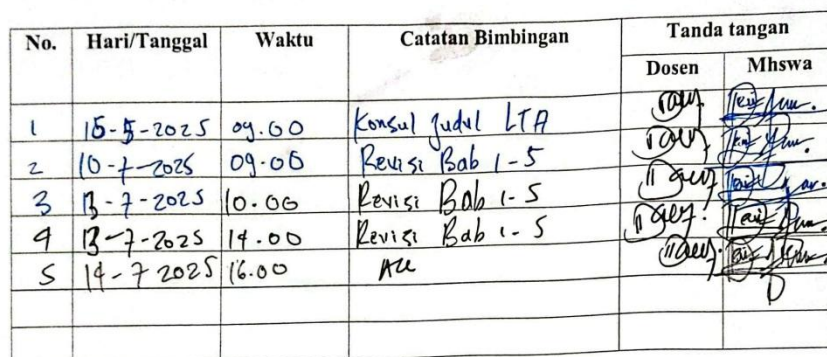 No. Hari/Tanggal Waktu Catatan Bimbingan Tanda tangan
Dosen Mhswa
1 15-5-2025 09.00 Konsul Judul LTA
2 10-7-2025 09.00 Revisi Bab 1-5
3 13-7-2025 10.00 Revisi Bab 1-5
4 13-7-2025 14.00 Revisi Bab 1-5
5 14-7 2025 16.00 Acc